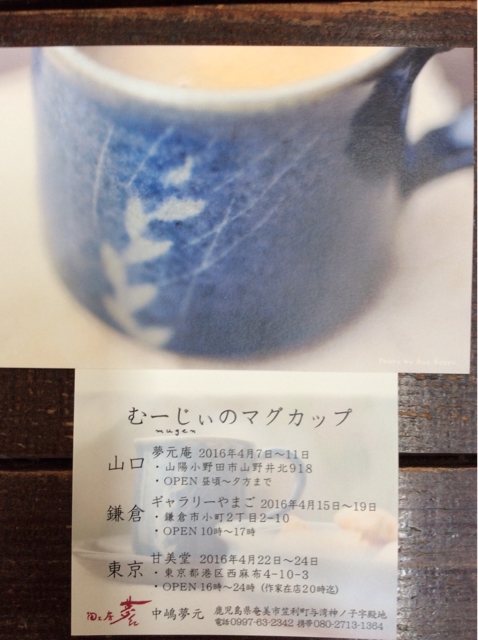 むーじぃのマグカップ
mugen
山口 夢元庵 2016年4月7日~11日
・山陽小野田市山野井北918
・OPEN 昼頃~夕方まで
鎌倉 ギャラリーやまご 2016年4月15日~19日
・鎌倉市小町2丁目2-10
・OPEN 10時~17時
東京 甘美堂 2016年4月22日~24日
・東京都港区西麻布4-10-3
・OPEN 16時~24時 (作家在店20時迄)
中嶋夢元 鹿児島県奄美市笠利町与湾神ノ子字殿地
電話0997-63-2342 携帯080-2713-1364